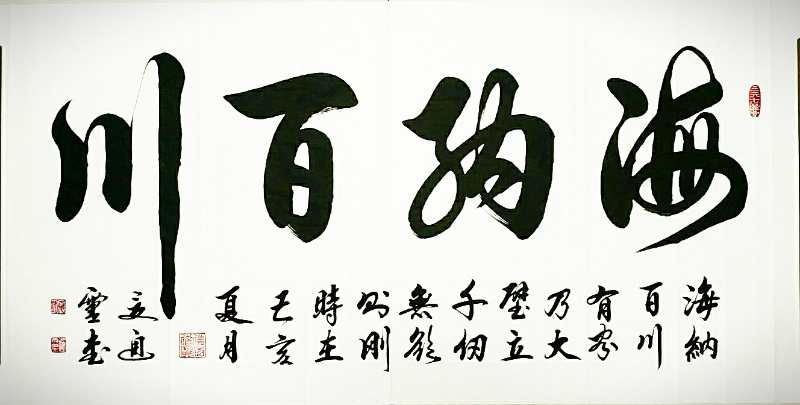 海納百川
海納
百川
有容
乃大
壁立
千仞
無欲
則剛
時在
己亥
夏月